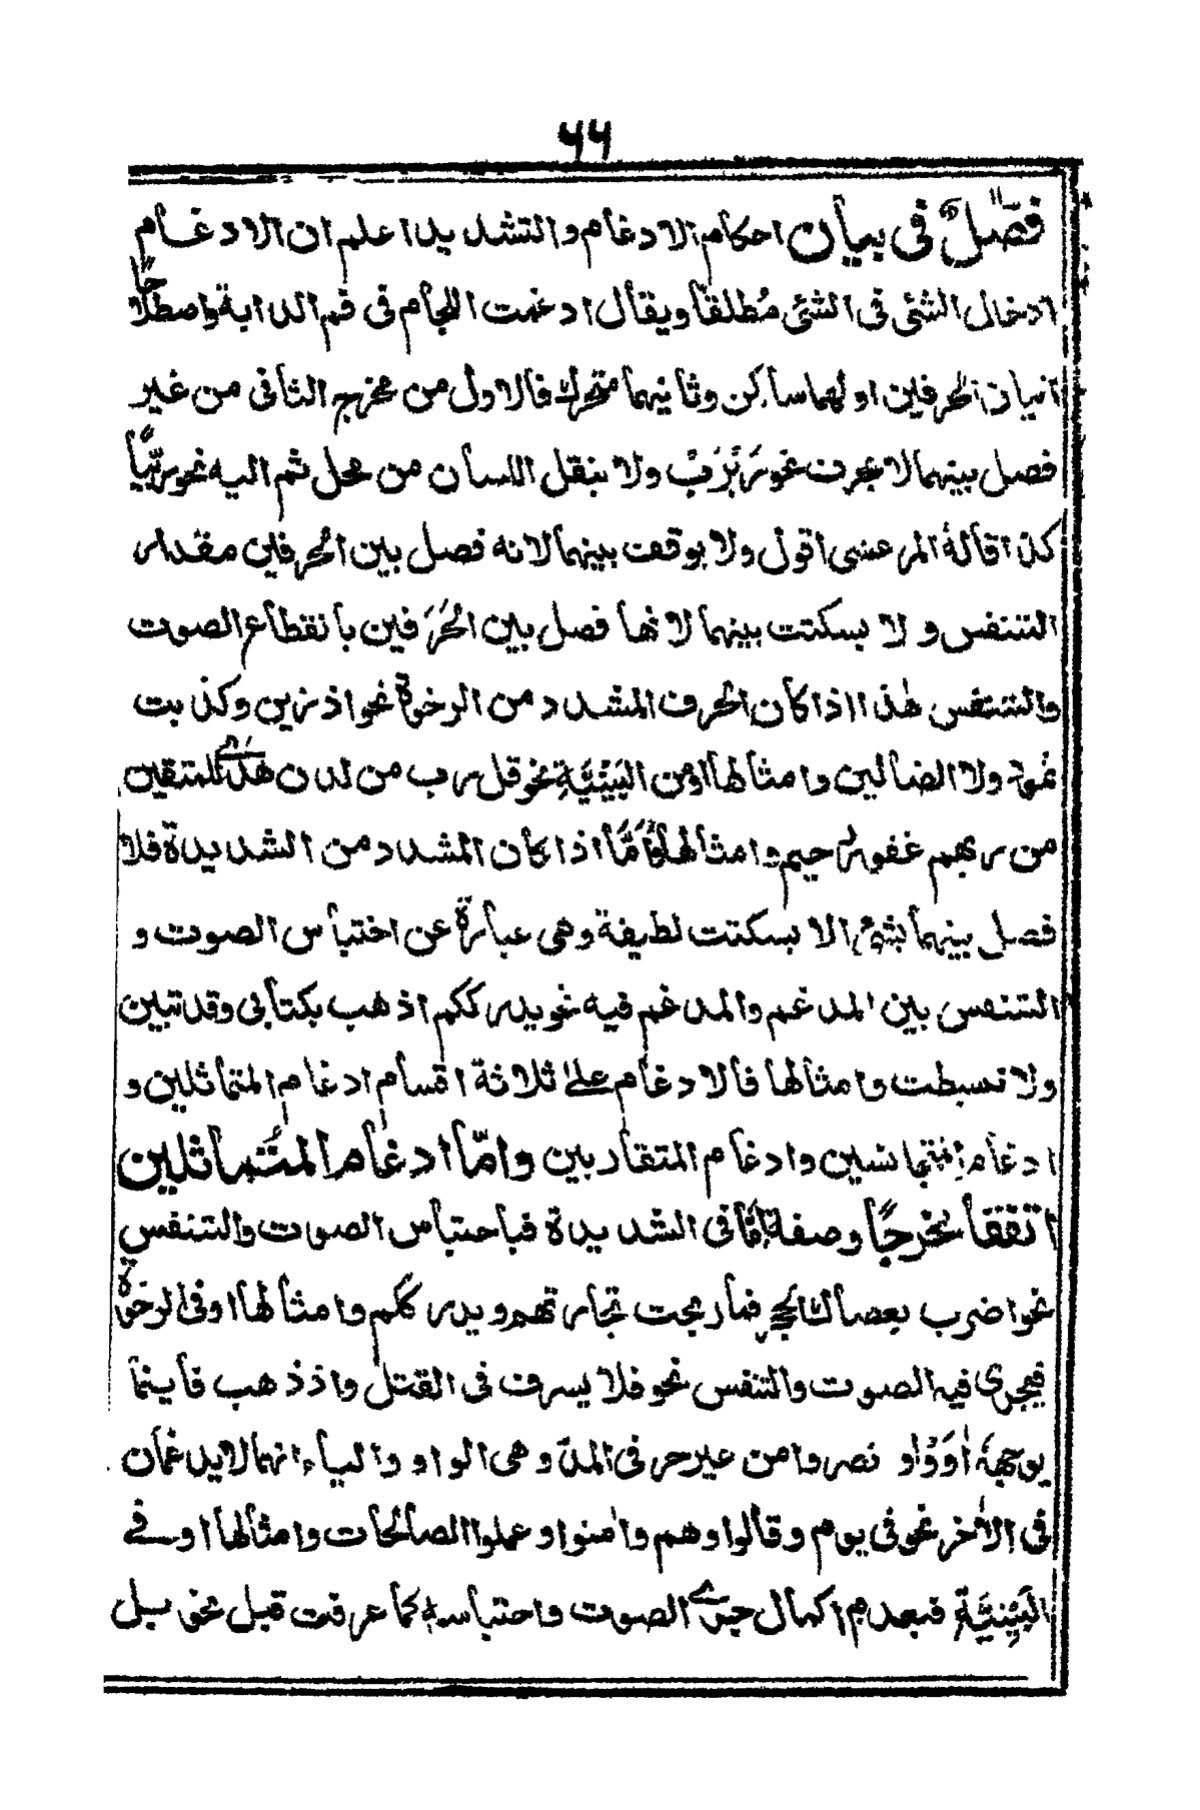 ٦٦
فصل في بيان احكام الادغام والتشديد اعلم ان الادغام
ادخال الشئ فى الشئ مُطلقا ويقال ادغمت اللجام فى فم الدابة واصطلاحًا
اتيان الحرفين اولهما ساكن وثانيهما متحرك فالاول من مخرج الثانى من غير
فصل بينهما لا بحرف نحو ولا بنقل اللسان من محل ثم اليه نحو
كذا قاله المرعشى اقول ولا بوقف بينهما لانه فصل بين الحرفين مقدار
التنفس و لا بسكتت بينهما لانها فصل بين الحَرَفين بانقطاع الصوت
والتنتفس هٰذا اذا كان الحرف المشدد من الرخوة نحو اذ زين وكذبت
ثمود ولا الضالين وامثالها اومن البَيْنِيَّةِ نحو قل رب من لدن هدًى للمتقين
من ربهم غفور رحيم وامثالها وَاَمَّا اذا كان المشدد من الشديدة فلا
فصل بينهما بشئ الا بسكتت لطيفة وهى عبارة عن اختباس الصوت و
التنفس بين المدغم والمدغم فيه نحو يدرككم اذهب بكتابى وقد تبين
ولا تسبطت وامثالها فالادغام على ثلاثة اقسام ادغام المتماثلين و
ادغام المتجانسين وادغام المتقاربين وامّا ادغام المتماثلين
اتفقا مخرجًا وصفة امّا فى الشديدة فباحتباس الصوت والتنفس
نحو اضرب بعصاك الحجر فمار بحت تجارتهم ويدرككم وامثالها اوفى الرخوة
فيجرى فيه الصوت والتنفس نحو فلا يسرف فى القتل واذ ذهب فاينما
يوجهه اٰوَوْا و نصروا من غير حرفى المدّ وهى الواو والياء انهما لايدغمان
فى الاٰخر نحو فى يوم وقالوا وهم واٰمنوا وعملوا الصالحات وامثالها او فے
البَيْنِيَّةِ فبعدم اكمال جرى الصوت واحتباسه كما عرفت قبل نحو بل